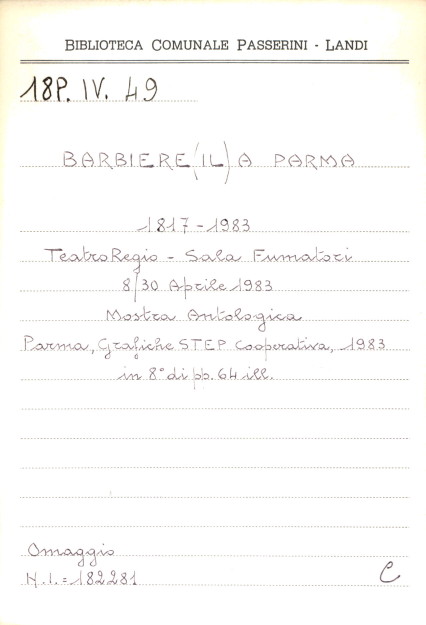 BIBLIOTECA COMUNALE PASSERINI - LANDI
18P. IV. 49
BARBIERE (IL) A PARMA
1817 - 1983
Teatro Regio - Sala Fumatori
8/30 Aprile 1983
Mostra Antologica
Parma, Grafiche STEP Cooperativa, 1983
in 8° di pp. 64 ill.
Omaggio
N.I. = 182281
C